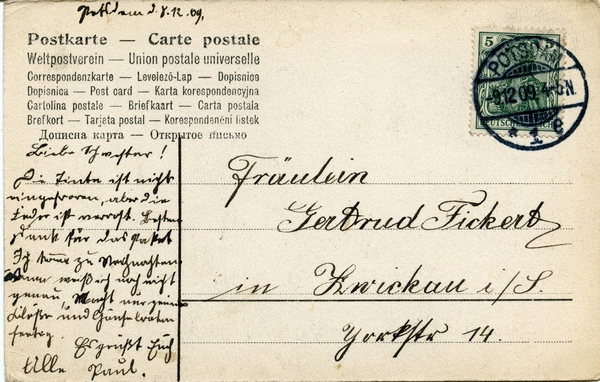 Potsdam d. 8.12.09.
Postkarte — Carte postale
Weltpostverein — Union postale universelle
Correspondenzkarte — Levelező-Lap — Dopisnice
Dopisnica — Post card — Karta korespondencyjna
Cartolina postale — Briefkaart — Carta postala
Brefkort — Tarjeta postal — Korespondenční lístek
Дописна карта — Открытое письмо
5
POTSDAM
8.12.09. 4-5N.
* 1 e
DEUTSCHES REICH
Liebe Schwester!
Die Tinte ist nicht
eingefroren, aber die
Feder ist verrost. Besten
Dank für das Paket
Ich komme zu Weihnachten
Wann weiß ich noch nicht
genau, Macht nur
Klöße und Gänsebraten
fertig.
Es grüßt Euch
Alle Paul.
Fräulein
Gertrud Fickert
in Zwickau i/S.
Yorkstr 14.